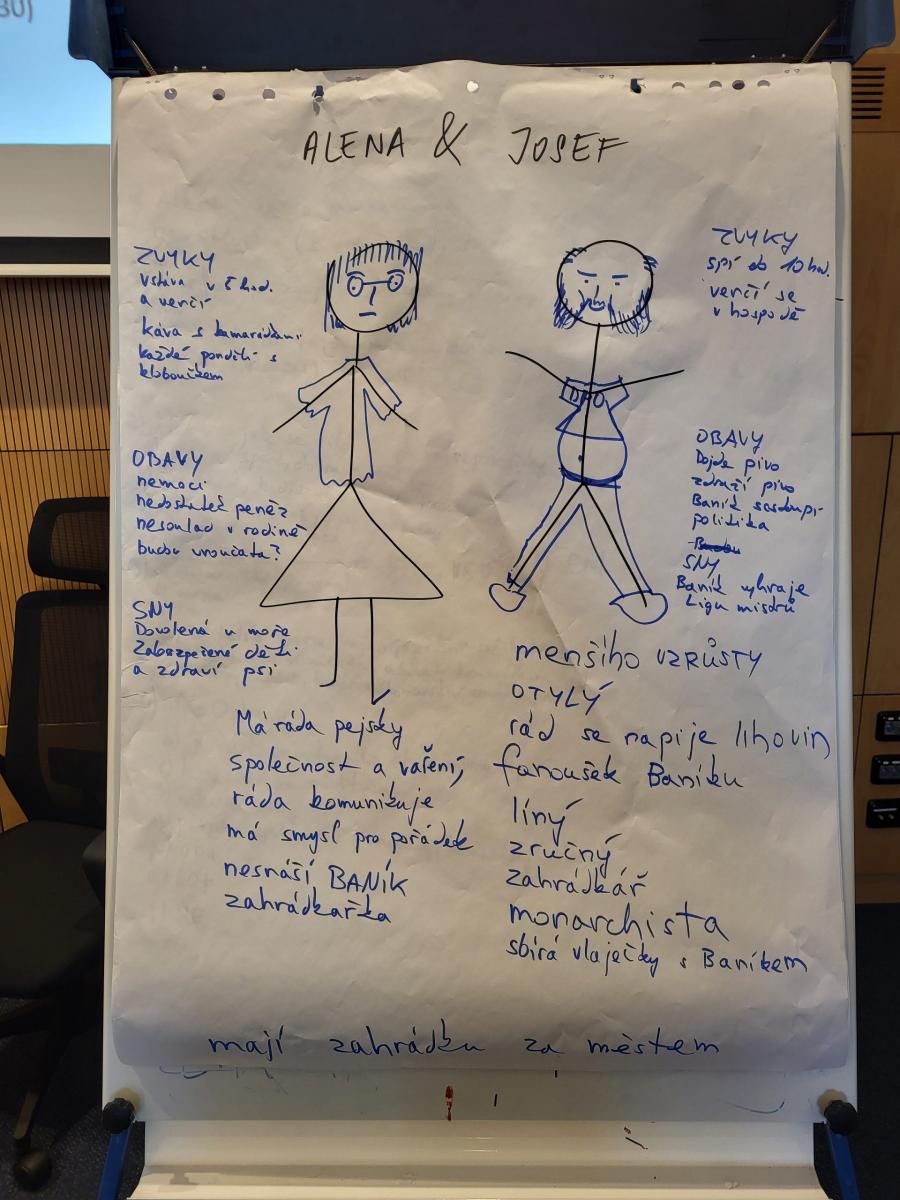 ALENA & JOSEF
ZVYKY
vstává v 5 hod.
a venčí
káva s kamarádkami
každé pondělí s
kloboučkem
OBAVY
nemoci
nedostatek peněz
nesoulad v rodině
budou vnoučata?
SNY
Dovolená u moře
Zabezpečené děti
a zdraví psi
Má ráda pejsky
společnost a vaření,
ráda komunikuje
má smysl pro pořádek
nesnáší BANÍK
zahrádkařka
ZVYKY
spí do 10 hod.
venčí se
v hospodě
OBAVY
Dojde pivo
zdraží pivo
Baník sestoupí
politika
SNY
Baník vyhraje
Ligu mistrů
menšího VZRŮSTY
OTYLÝ
rád se napije lihovin
fanoušek Baníku
líný
zručný
zahrádkář
monarchista
sbírá vlaječky s Baníkem
mají zahrádku za městem